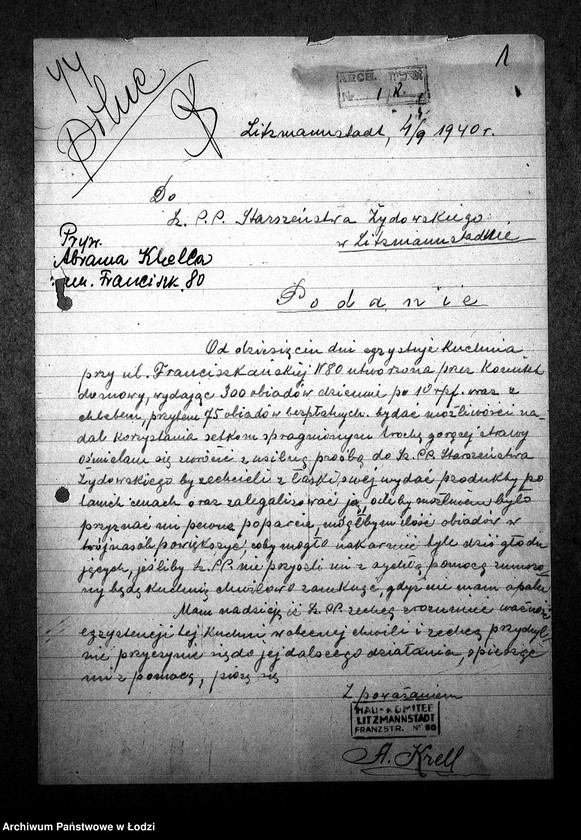 44
ARCH.
№ 1 R.
1
Litzmannstadt, 4/9 1940 r.
Do
Sz. P.P. Starszeństwa Żydowskiego
w Litzmannstadcie
Pryw.
Abrama Krella
um. Francisk. 80
Podanie
Od dziesięciu dni egzystuje Kuchnia
przy ul. Franciszkańskiej №80 utworzona przez Komitet
domowy, wydając 300 obiadów dziennie po 10 rpf. wraz z
chlebem, przytem 75 obiadów bezpłatnych. by dać możliwość na-
dal korzystania setkom spragnionym trochę gorącej strawy
ośmielam się zwrócić z usilną prośbą do Sz. P.P. Starszeństwa
Żydowskiego by zechcieli z łaski swej wydać produkty po
tanich cenach oraz zalegalizować ją, o ile by możliwem było
przyznać mi pewne poparcie, mógłbym ilość obiadów w
trójnasób powiększyć, coby mogło nakarmić tyle dziś głodu
jących, jeśliby Sz. P.P. nie przyszli mi z rychłą pomocą zmuszo-
ny będę kuchnię chwilowo zamknąć, gdyż nie mam opału
Mam nadzieję iż Sz. P.P. zechcą zrozumieć ważność
egzystencji tej Kuchni w obecnej chwili i zechcą przychyl-
nie przyczynić się do jej dalszego działania, śpiesząc
mi z pomocą, piszę się
Z poważaniem
HAUS-KOMITEE
LITZMANNSTADT
FRANZSTR. № 80
A. Krell
Archiwum Państwowe w Łodzi